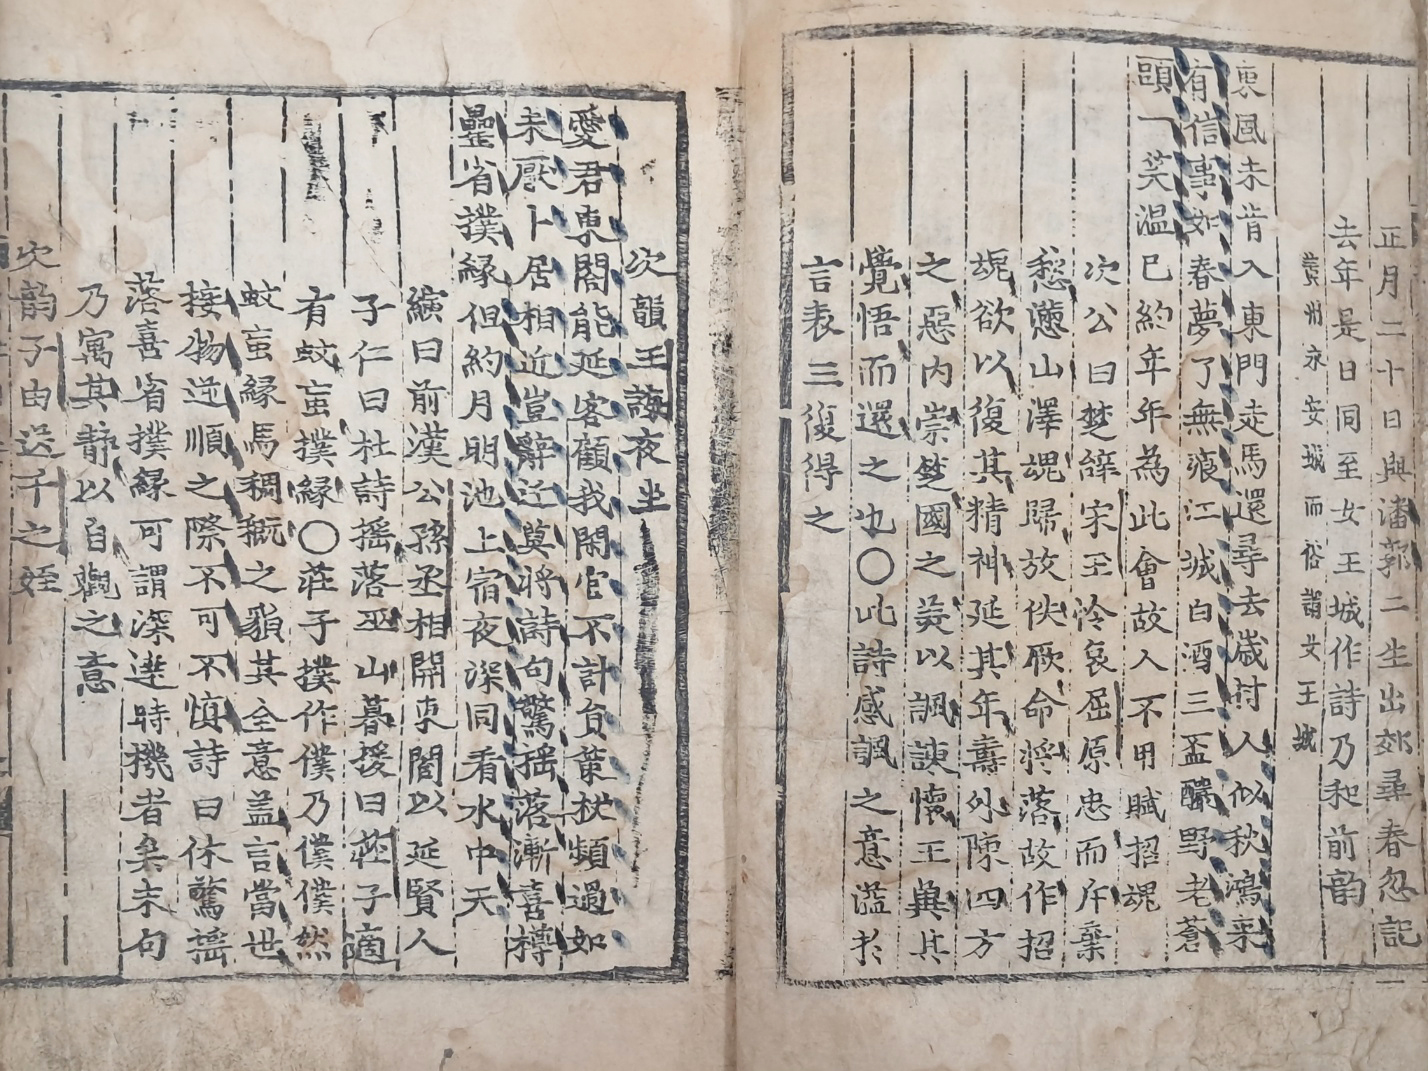 正月二十日與潘郭二生出郊尋春忽記
去年是日同至女王城作詩乃和前韵
黄州永安城而俗謂女王城
東風未肯入東門走馬還尋去歲村人似秋鴻來
有信事如春夢了無痕江城白酒三盃釅野老蒼
頭一笑温已約年年為此會故人不用賦招魂
次公曰楚辭宋玉冷哀屈原忠而斥棄
愁懣山澤魂歸放佚厥命將落故作招
䰟欲以復其精神延其年壽外陳四方
之惡内崇楚國之美以諷諫懷王兾其
覺悟而還之也〇此詩感諷之意溢於
言表三復得之
次韻王誨夜坐
愛君東閤能延客顧我閑官不計負葉杖頻過如
未厭卜居相近豈辭迁莫將詩句驚摇落漸喜樽
罍省撲縁但約月明池上宿夜深同看水中天
縯曰前漢公孫丞相開東閤以延賢人
子仁曰杜詩摇落巫山暮援曰莊子適
有蚊䖟撲縁〇莊子撲作僕乃僕僕然
蚊䖟縁馬稠穊之貌其全意盖言當世
接物逆順之際不可不慎詩曰休驚摇
落喜省撲縁可謂深達時機者矣末句
乃寓其静以自觀之意
次韵子由送千之姪